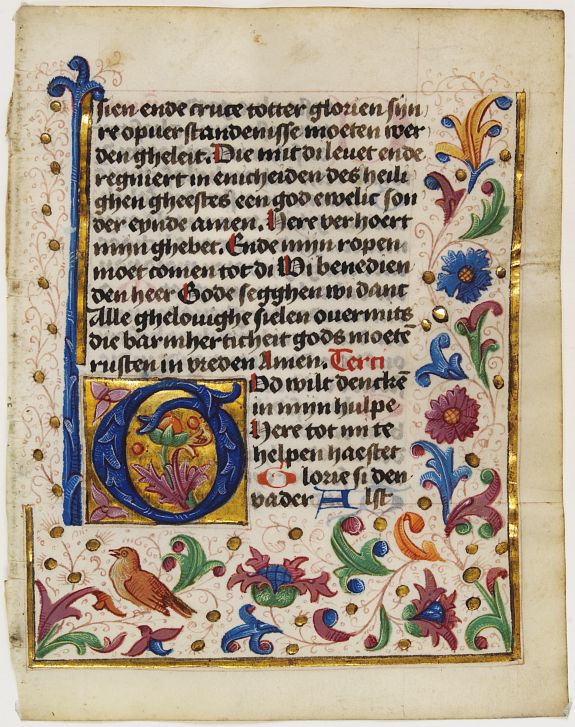 sien ende cruce totter glorien sijn
re opuerstandenisse moeten wer
den gheleit. Die mit di leuet ende
regniert in enicheiden des heili
ghen gheestes een god ewelic son
der eynde amen. Here verhoert
mijn ghebet. Ende mijn ropen
moet comen tot di Wi benedien
den heer Gode segghen wi danc
Alle ghelouighe sielen ouermits
die barmherticheit gods moetē
rusten in vreden Amen. Terci
God wilt denckē
in mijn hulpe
Here tot mi te
helpen haestet
Glorie si den
vader Alst